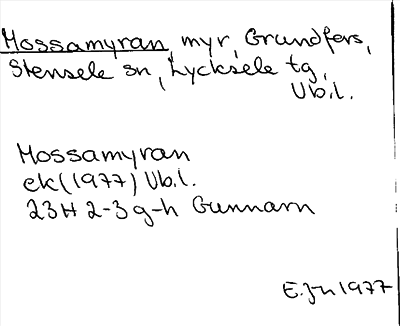 Mossamyran, myr, Grundfors,
Stensele sn, Lycksele tg,
Vb.l.
Mossamyran
ek (1977) Vb.l.
23H 2-3 g-h Gunnarn
E.Jn 1977